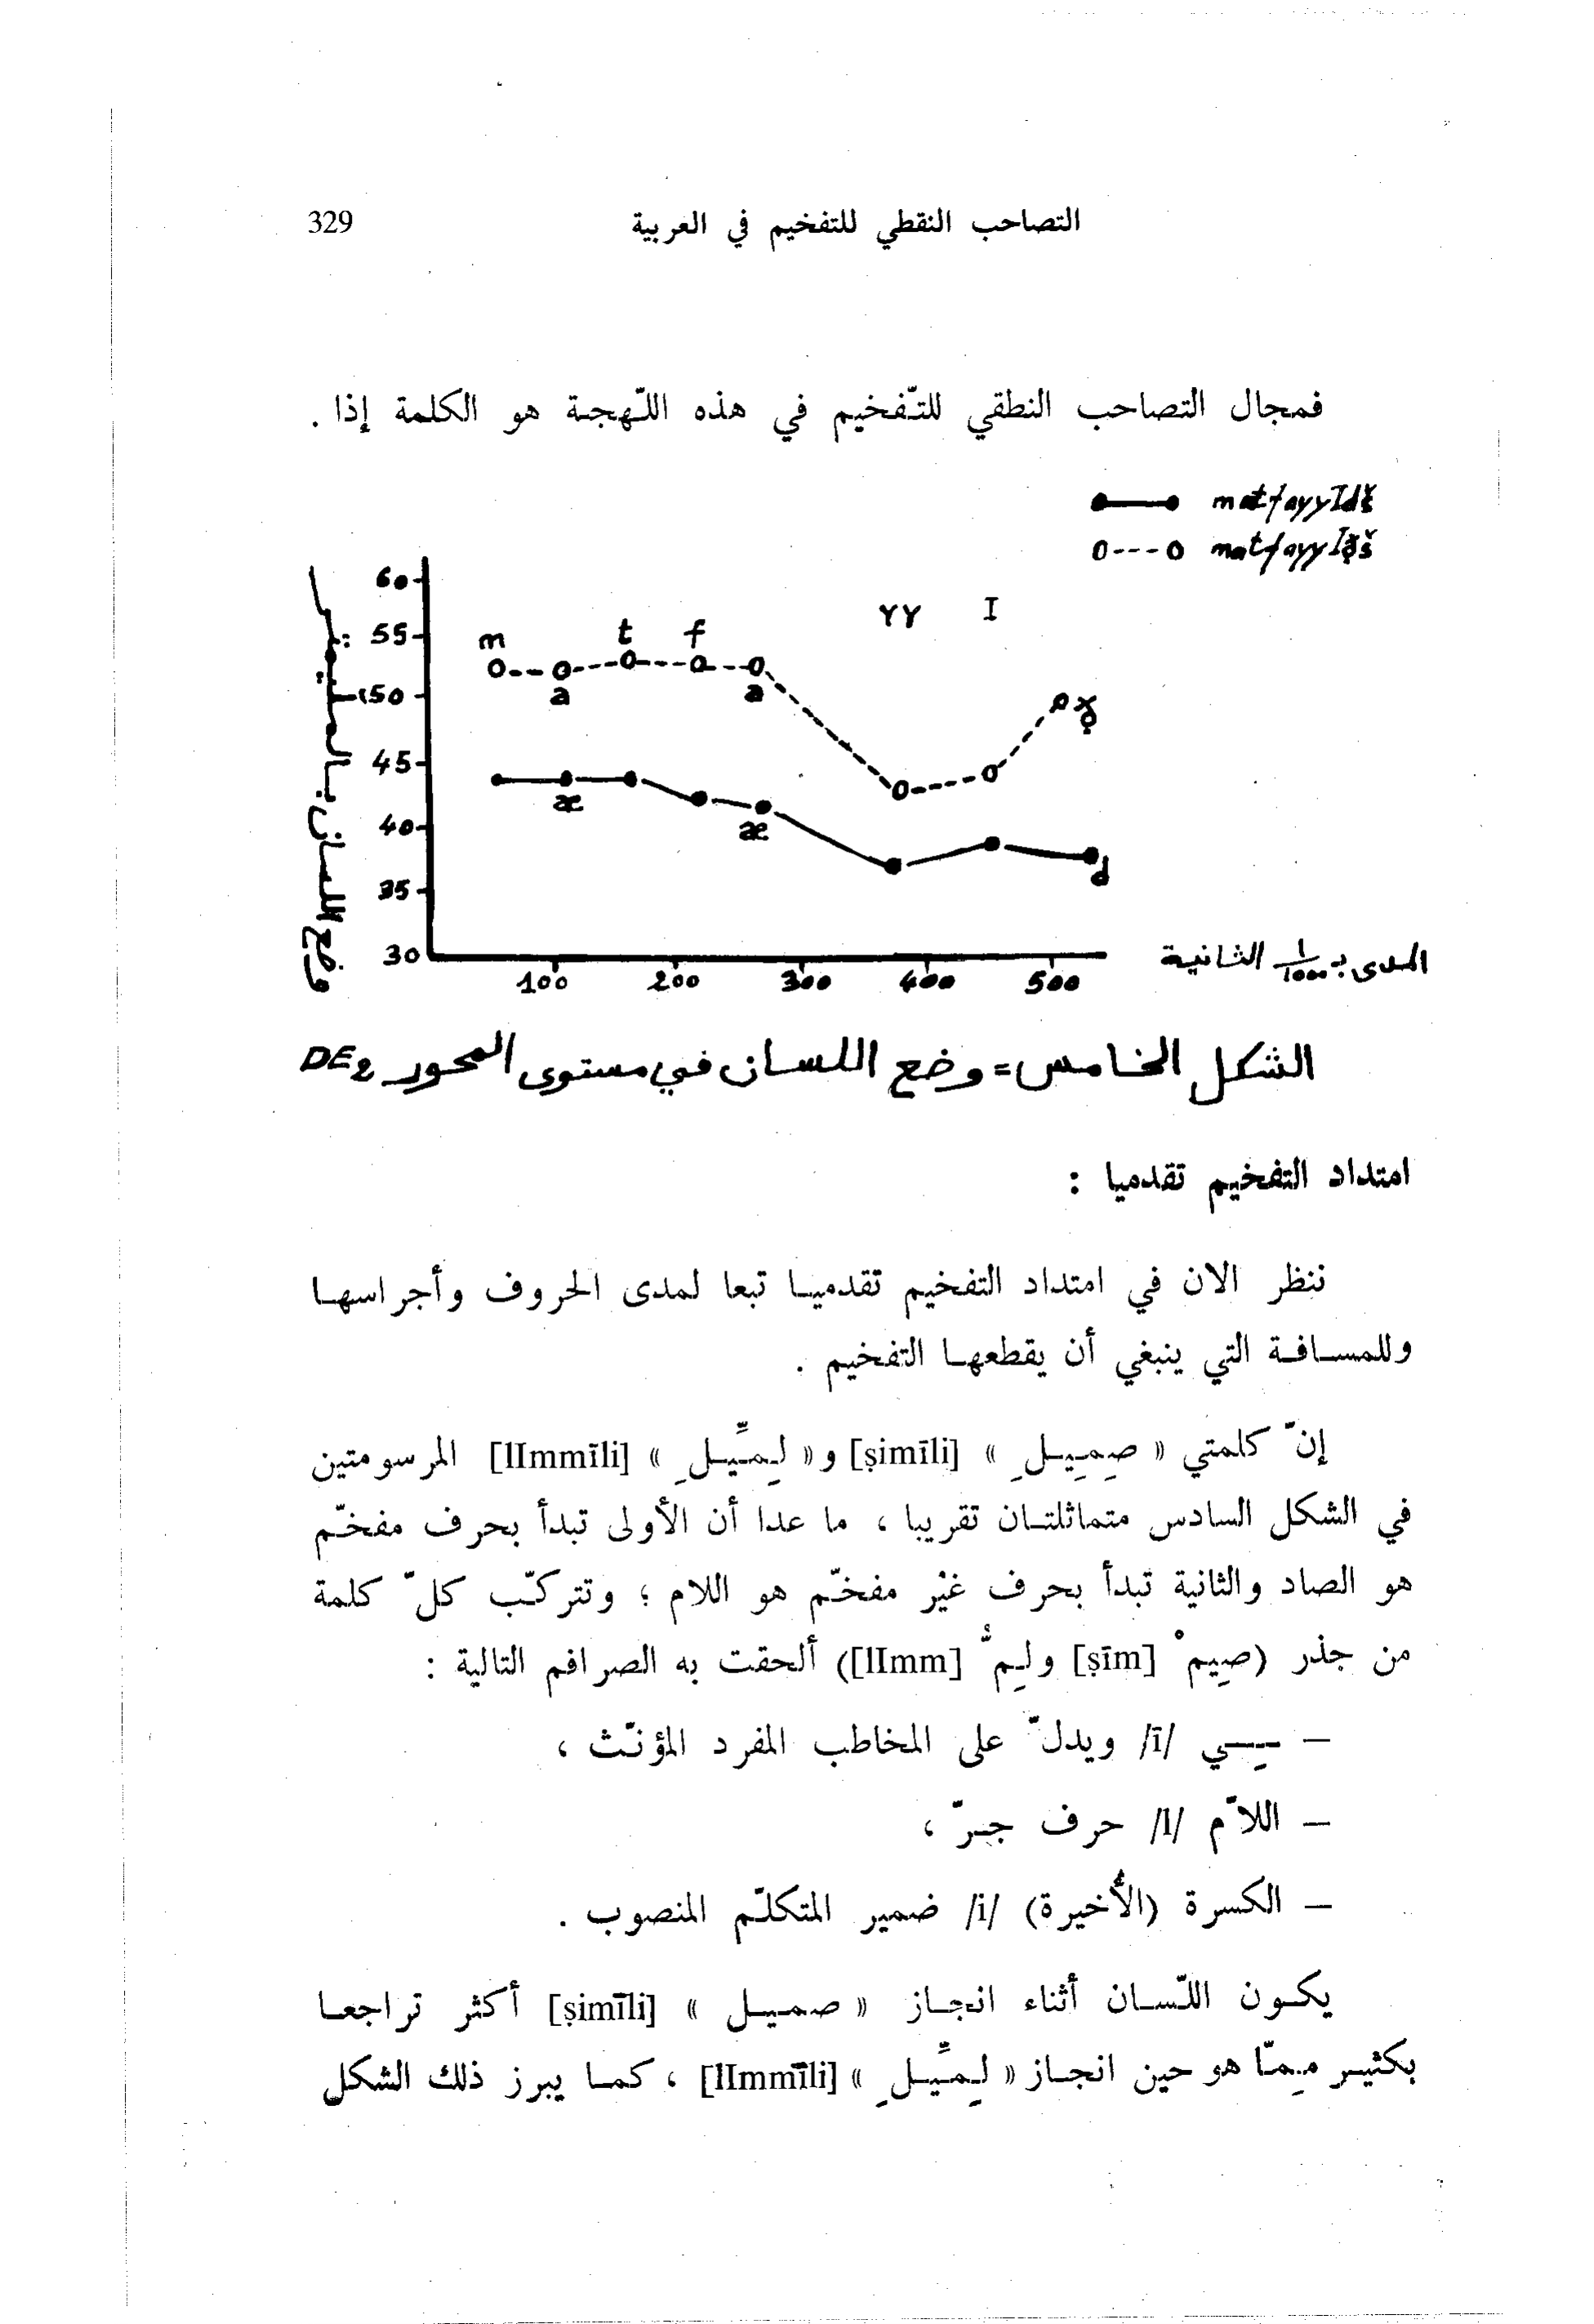 التصاحب النقطي للتفخيم في العربية 329
فمجال التصاحب النطقي للتّفخيم في هذه اللّهجة هو الكلمة إذا .
matfayyIdš
matfayyIḍš
60
55
50
45
40
35
30
m t f YY I
a a
æ æ
d
100 200 300 400 500
وضع اللسان بالمليمتر
المدى بـ 1/1000 الثانية
الشكل الخامس = وضع اللسان في مستوى المحور DE2
امتداد التفخيم تقدميا :
ننظر الان في امتداد التفخيم تقدميا تبعا لمدى الحروف وأجراسها
وللمسافة التي ينبغي أن يقطعها التفخيم .
إنّ كلمتي « صِمِيلِ » [ṣimīli] و« لِمِّيلِ » [lImmīli] المرسومتين
في الشكل السادس متماثلتان تقريبا ، ما عدا أن الأولى تبدأ بحرف مفخّم
هو الصاد والثانية تبدأ بحرف غيْر مفخّم هو اللام ؛ وتتركّب كلّ كلمة
من جذر (صِيمْ [ṣīm] ولِمُّ [lImm]) ألحقت به الصرافم التالية :
– ـِـي /ī/ ويدلّ على المخاطب المفرد المؤنّث ،
– اللاّم /l/ حرف جرّ ،
– الكسرة (الأخيرة) /i/ ضمير المتكلّم المنصوب .
يكون اللّسان أثناء انجاز « صميل » [ṣimīli] أكثر تراجعا
بكثير مِمّا هو حين انجاز « لِمِّيلِ » [lImmīli] ، كما يبرز ذلك الشكل